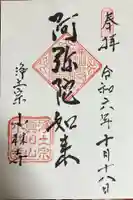 奉拝
令和六年十月十八日
阿弥陀如来
浄土宗 小林寺